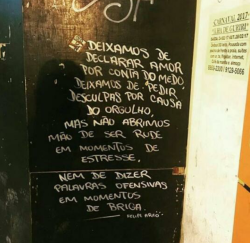 DEIXAMOS DE
DECLARAR AMOR
POR CONTA DO MEDO
DEIXAMOS DE PEDIR
DESCULPAS POR CAUSA
DO ORGULHO,
MAS NÃO ABRIMOS
MÃO DE SER RUDE
EM MOMENTOS DE
ESTRESSE,
NEM DE DIZER
PALAVRAS OFENSIVAS
EM MOMENTOS
DE BRIGA.
CARNAVAL 2017